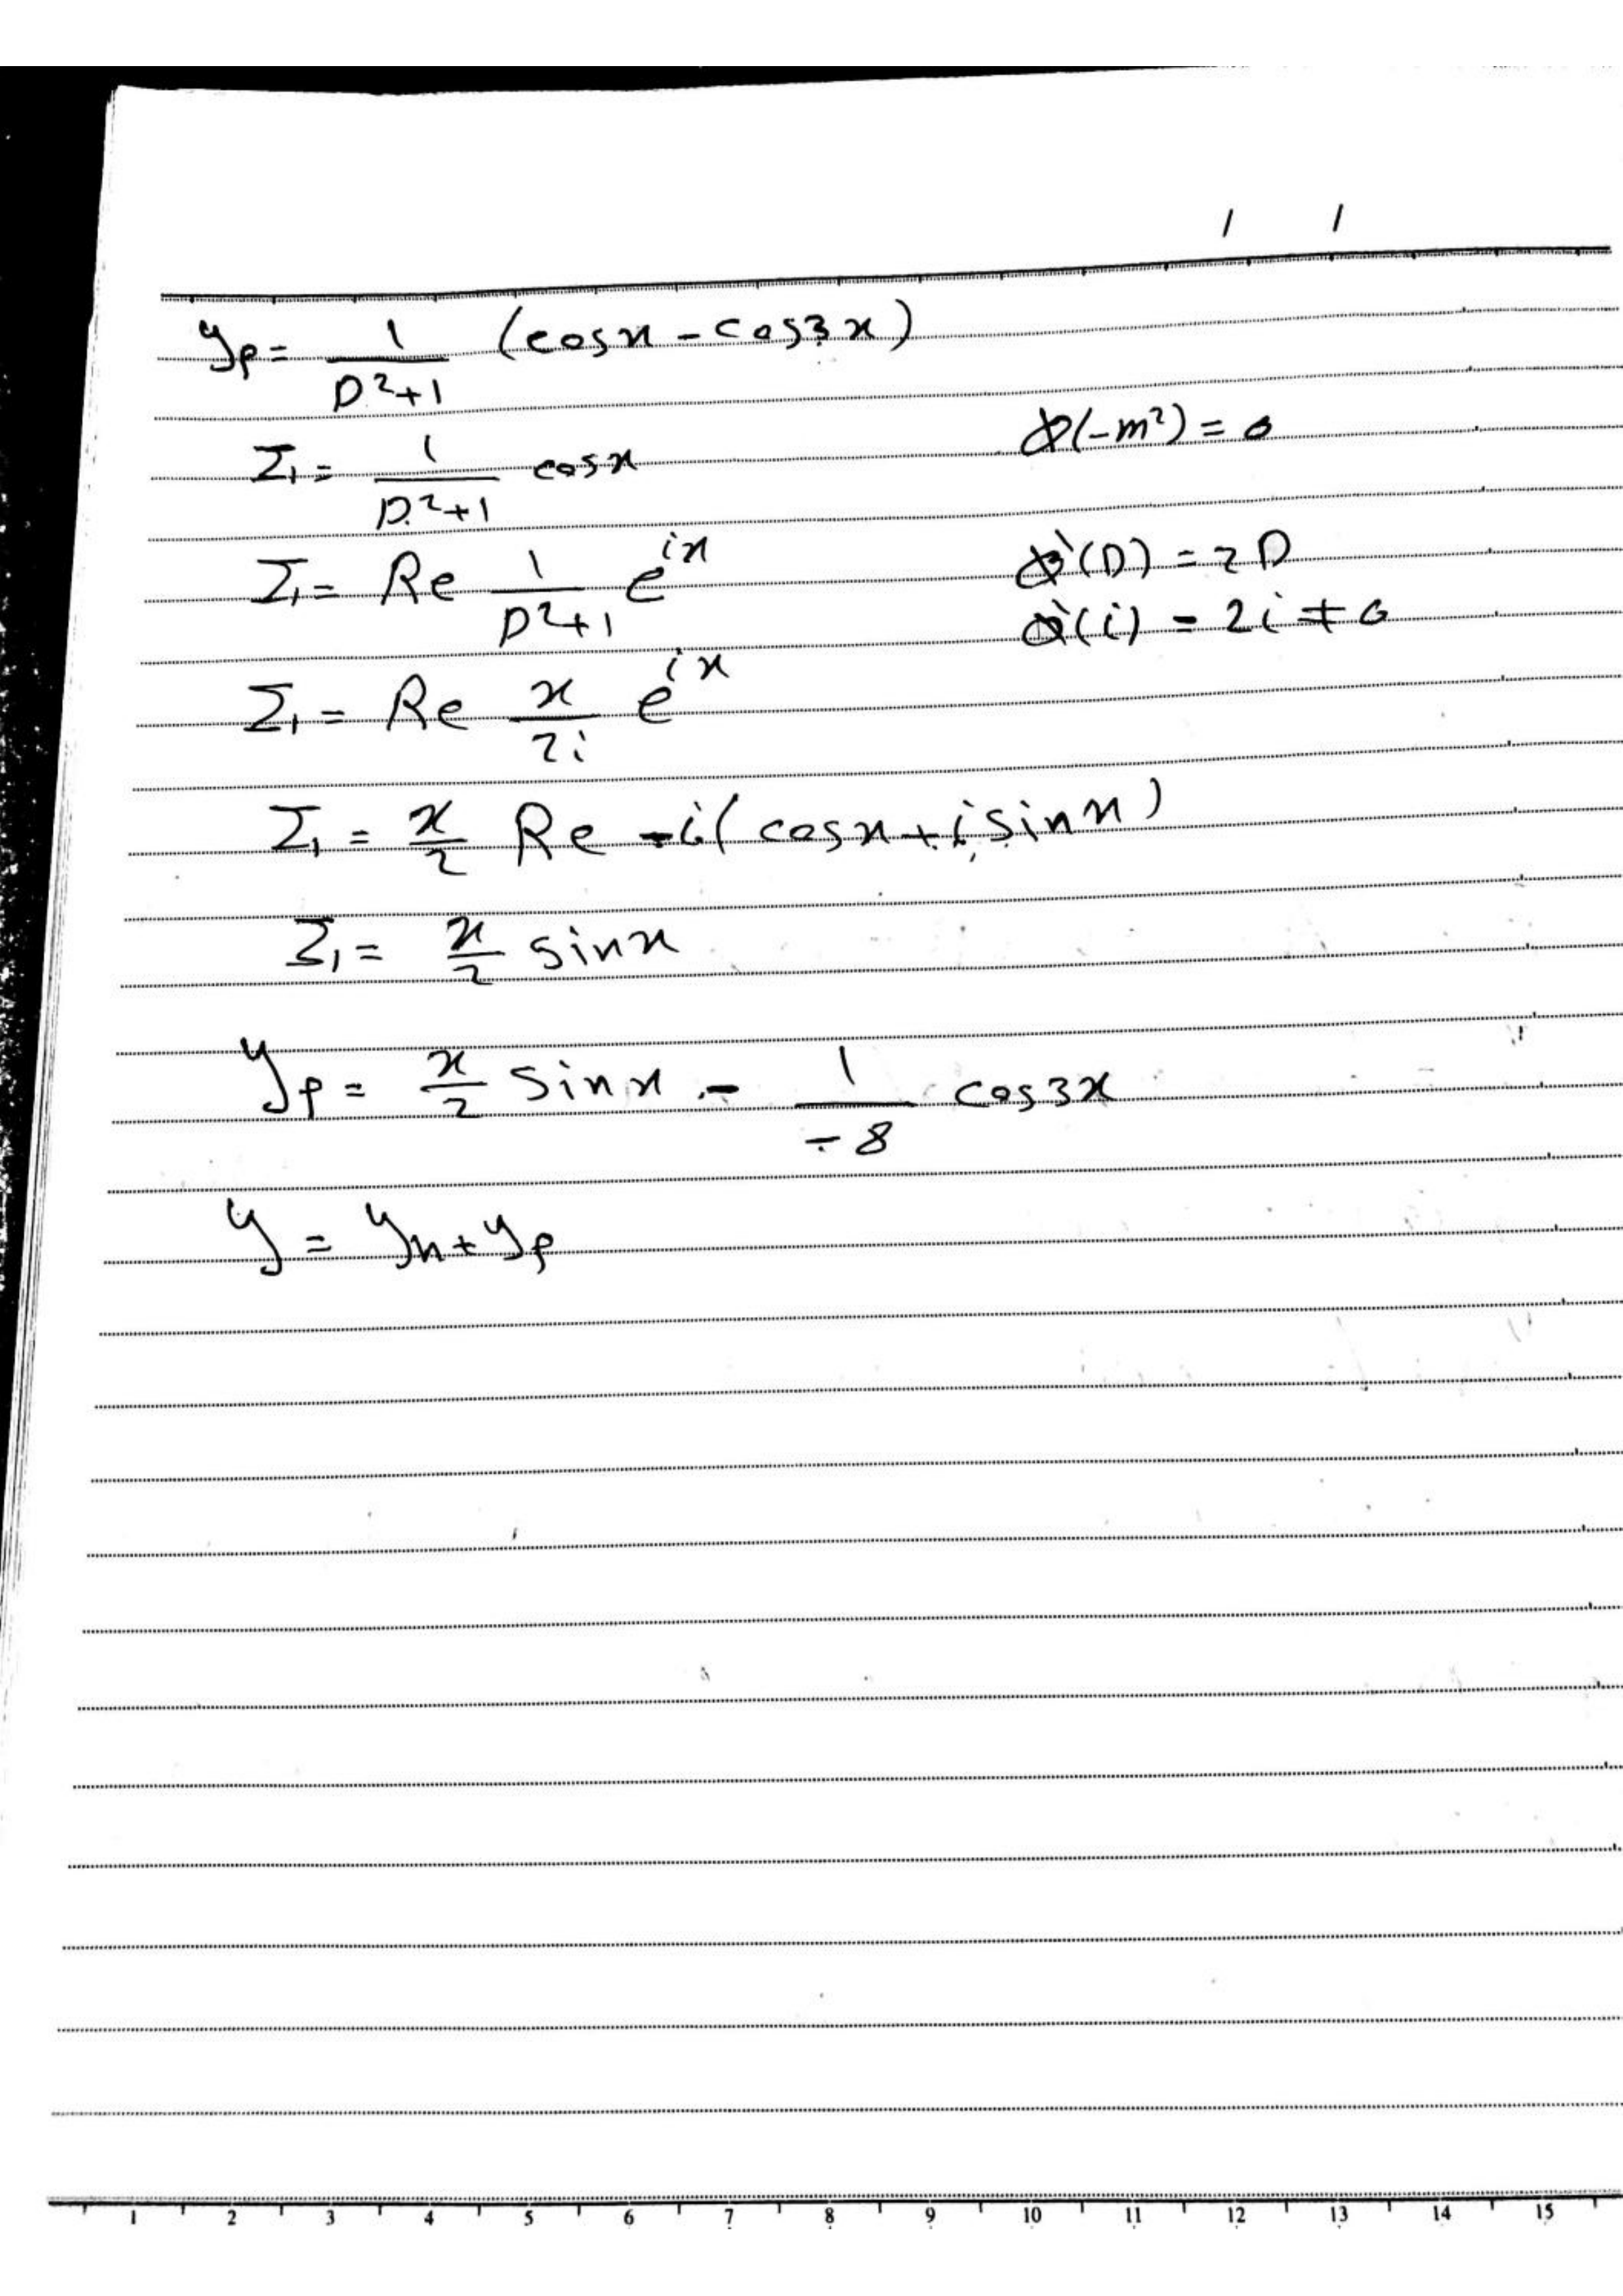 / /
yp = 1/(D²+1) (cosx - cos3x)
I₁ = 1/(D²+1) cosx
ϕ(-m²) = 0
I₁ = Re 1/(D²+1) e^{ix}
ϕ'(D) = 2D
ϕ'(i) = 2i ≠ 0
I₁ = Re x/2i e^{ix}
I₁ = x/2 Re -i(cosx + i sinx)
I₁ = x/2 sinx
yp = x/2 sinx - 1/-8 cos3x
y = yh + yp
1 2 3 4 5 6 7 8 9 10 11 12 13 14 15